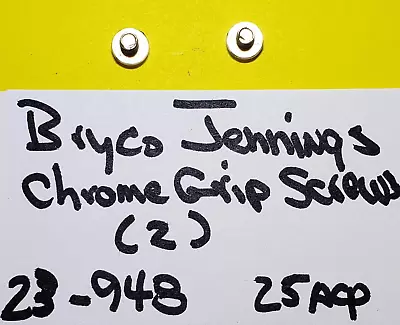 Bryco Jennings
Chrome Grip Screws
(2)
23-948 25 ACP